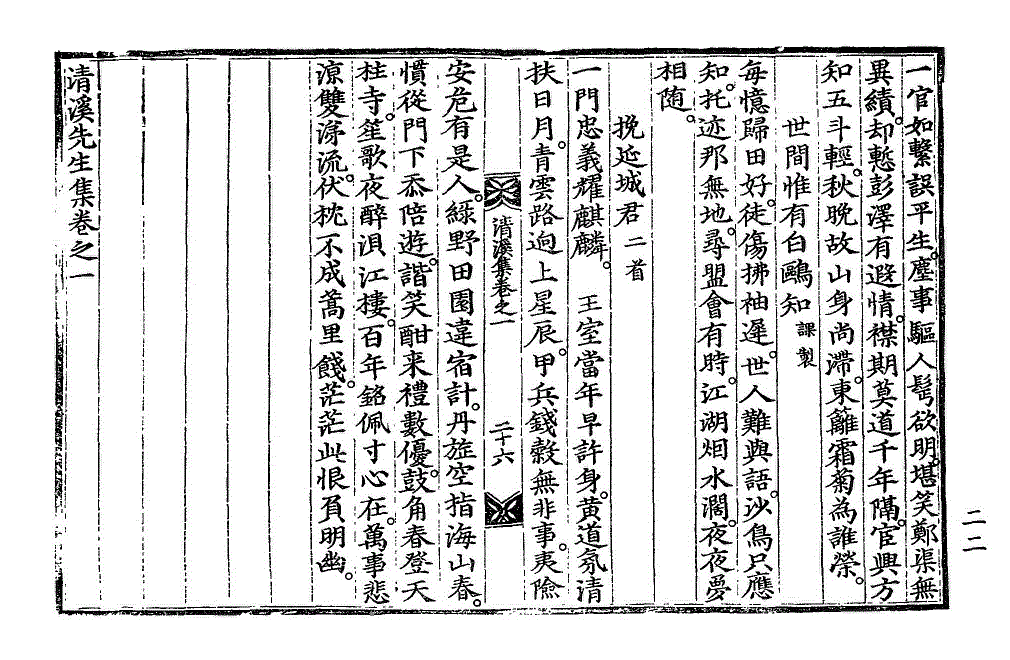 一官如繫誤平生。塵事驅人髩欲明。堪笑鄭渠無
異績。却慙彭澤有遐情。襟期莫道千年隔。宦興方
知五斗輕。秋晚故山身尚滯。東籬霜菊為誰榮。
世間惟有白鷗知 課製
每憶歸田好。徒傷拂袖遲。世人難與語。沙鳥只應
知。托迹那無地。尋盟會有時。江湖烟水濶。夜夜夢
相隨。
挽延城君 二首
一門忠義耀麒麟。 王室當年早許身。黃道氛清
扶日月。青雲路逈上星辰。甲兵錢穀無非事。夷險
清溪集卷之一
二十六
安危有是人。綠野田園違宿計。丹旌空指海山春。
慣從門下忝陪遊。諧笑酣来禮數優。鼓角春登天
柱寺。笙歌夜醉浿江樓。百年銘佩寸心在。萬事悲
凉雙涕流。伏枕不成蒿里餞。茫茫此恨負明幽。
清溪先生集卷之一
二二